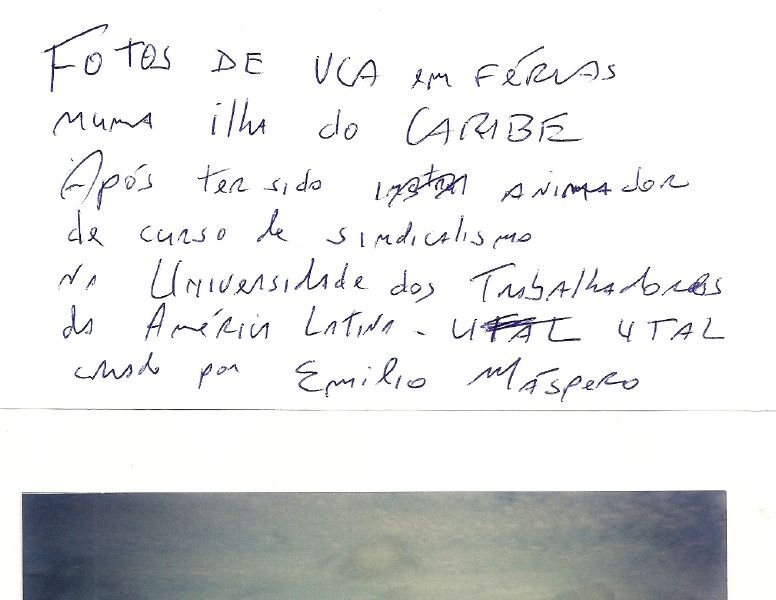 FOTOS DE VCA em FÉRIAS
numa ilha do CARIBE
Após ter sido ANIMADOR
de curso de sindicalismo
na Universidade dos Trabalhadores
da América Latina - UTAL UTAL
criado por Emilio Máspero